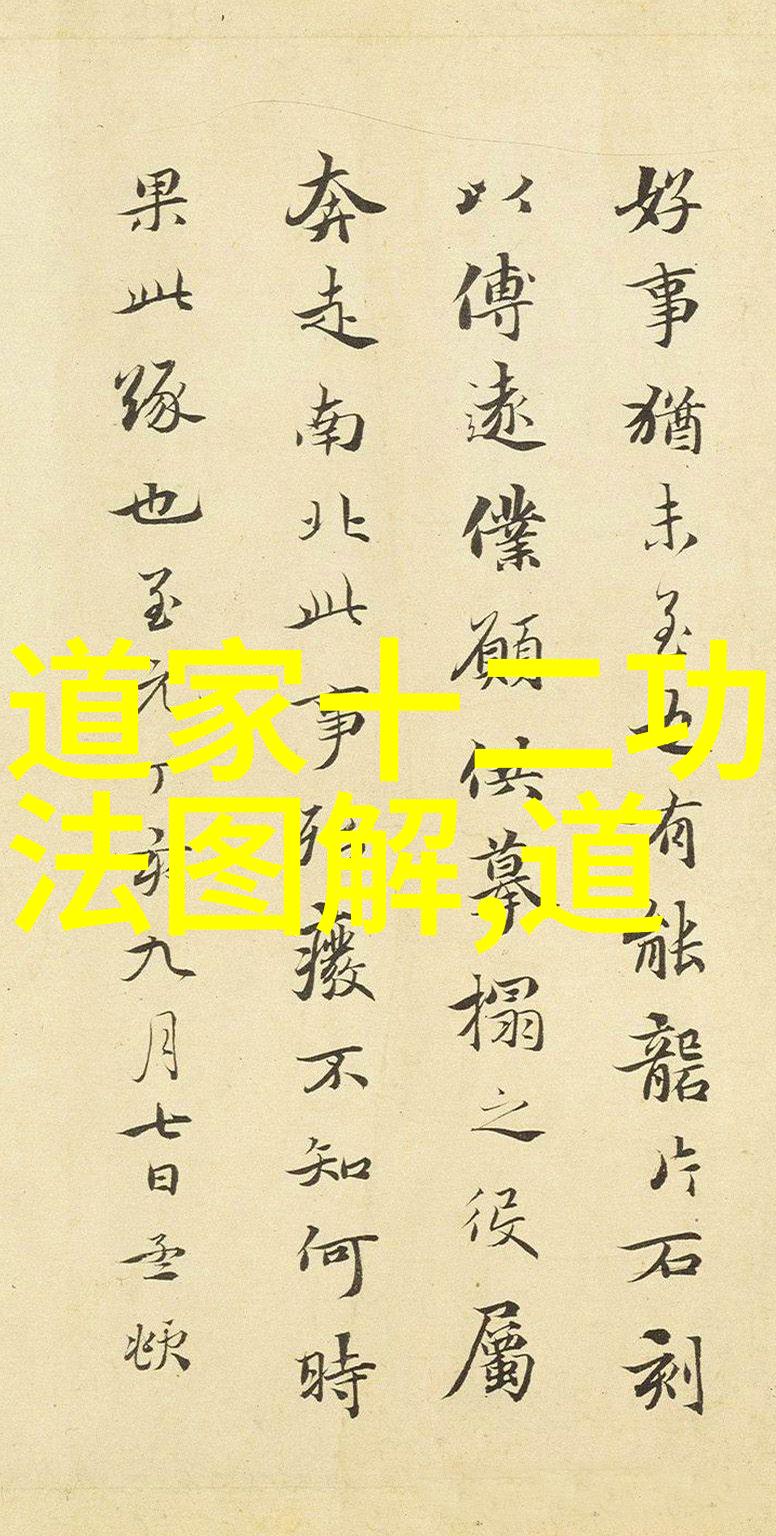 好事猶未至也有能龍片石刻
以傳遠僕願供摹搨之役屬
奔走南北此事殆癈不知何時
果此緣也至元丁亥九月七日孟頫
道家十二功
法图解,道